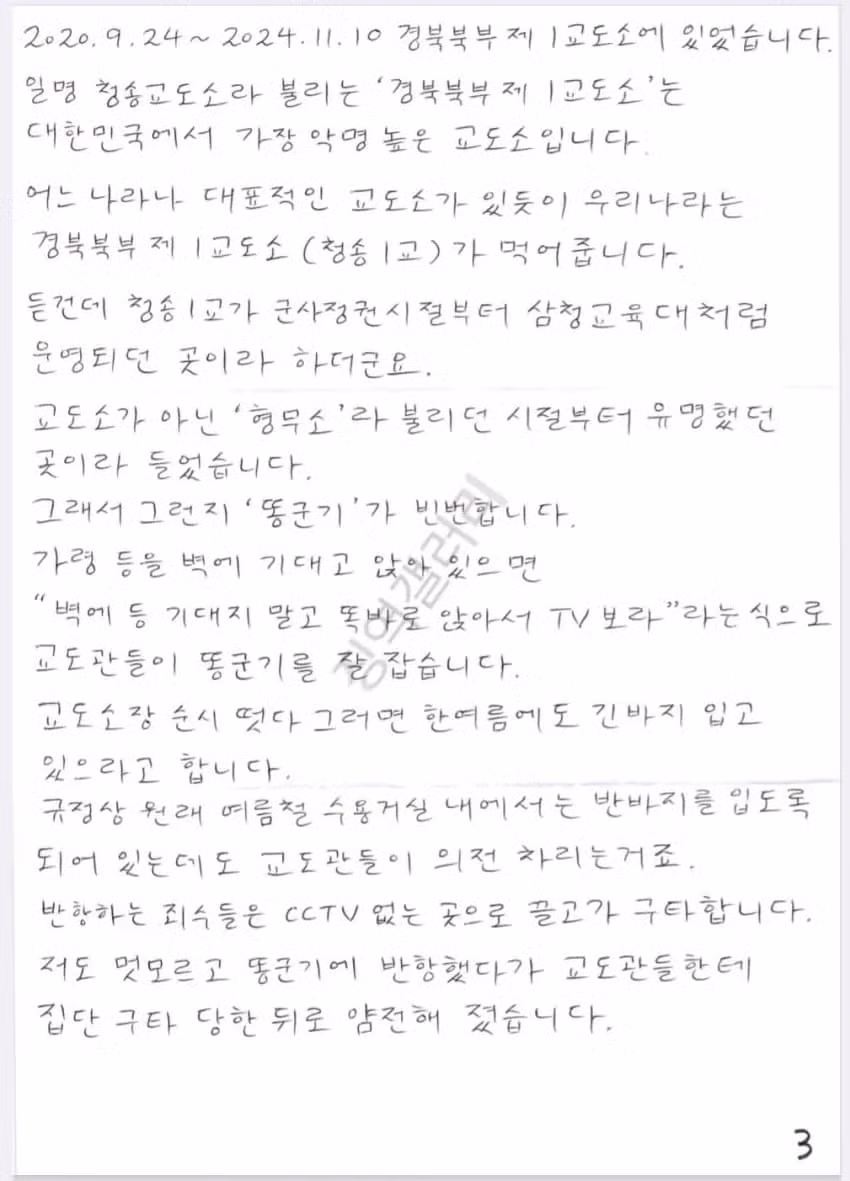 2020.9.24~2024.11.10 경북북부제1교도소에 있었습니다.
일명 청송교도소라 불리는 '경북북부제1교도소'는
대한민국에서 가장 악명 높은 교도소입니다.
어느 나라나 대표적인 교도소가 있듯이 우리나라는
경북북부제1교도소 (청송1교)가 먹어줍니다.
듣건데 청송1교가 군사정권시절부터 삼청교육대처럼
운영되던 곳이라 하더군요.
교도소가 아닌 '형무소'라 불리던 시절부터 유명했던
곳이라 들었습니다.
그래서 그런지 '똥군기'가 빈번합니다.
가령 등을 벽에 기대고 앉아 있으면
"벽에 등 기대지 말고 똑바로 앉아서 TV 보라"라는식으로
교도관들이 똥군기를 잘 잡습니다.
교도소장 순시 떳다 그러면 한여름에도 긴바지 입고
있으라고 합니다.
규정상 원래 여름철 수용거실 내에서는 반바지를 입도록
되어 있는데도 교도관들이 의전 차리는거죠.
반항하는 죄수들은 CCTV 없는 곳으로 끌고가 구타합니다.
저도 멋모르고 똥군기에 반항했다가 교도관들한테
집단 구타 당한 뒤로 얌전해 졌습니다.
갤러리
3